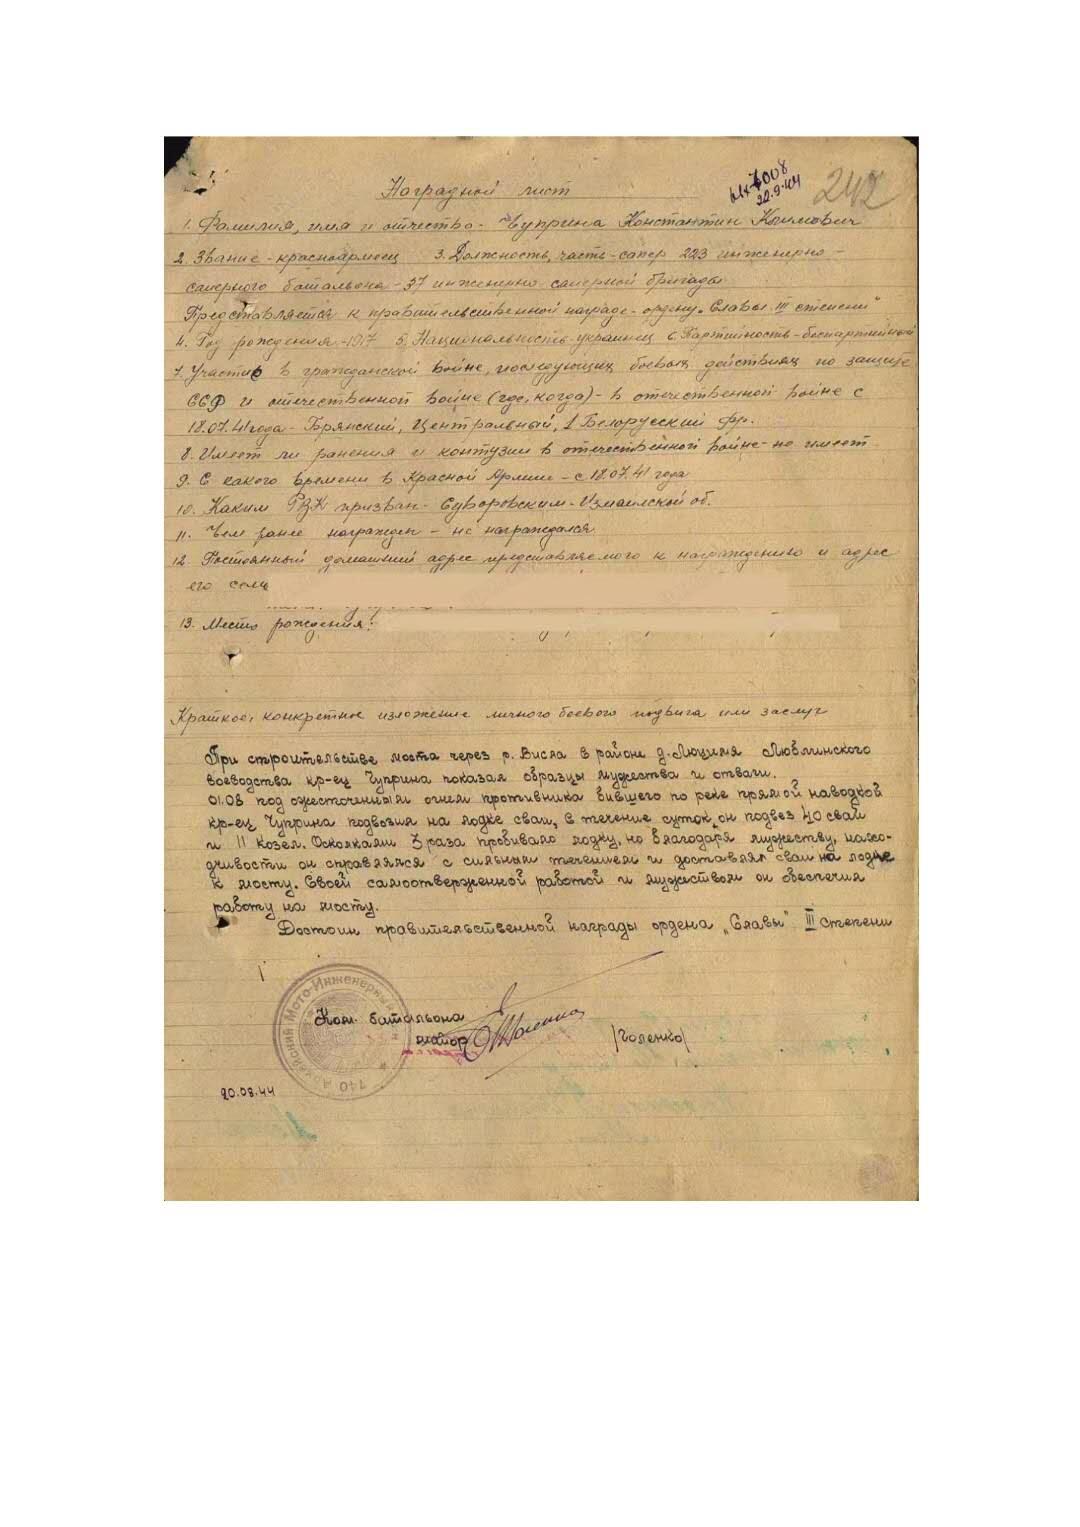 вх 7008
22.9.44
242
Наградной лист
1. Фамилия, имя и отчество - Чуприна Константин Климович
2. Звание - красноармеец 3. Должность, часть - сапер 223 инженерно-
саперного батальона - 37 инженерно саперной бригады
Представляется к правительственной награде - ордену „Славы III степени"
4. Год рождения - 1917 5. Национальность - украинец 6. Партийность - беспартийный
7. Участие в гражданской войне, последующих боевых действиях по защите
СССР и отечественной войне (где, когда) - в отечественной войне с
18.07.41 года - Брянский, Центральный, 1 Белорусский фр.
8. Имеет ли ранения и контузии в отечественной войне - не имеет
9. С какого времени в Красной Армии - с 18.07.41 года
10. Каким РВК призван - Суворовским - Измаилской об.
11. Чем ранее награжден - не награждался
12. Постоянный домашний адрес представляемого к награждению и адрес
его семь
13. Место рождения:
Краткое, конкретное изложение личного боевого подвига или заслуг
При строительстве моста через р. Висла в районе д. Люцимя Люблинского
воеводства кр-ец Чуприна показал образцы мужества и отваги.
01.08 под ожесточенным огнем противника бившего по реке прямой наводкой
кр-ец Чуприна подвозил на лодке сваи, в течение суток он подвез 40 свай
и 11 козел. Осколками 3 раза пробивало лодку, но благодаря мужеству, нахо-
дчивости он справлялся с сильным течением и доставлял сваи на лодке
к мосту. Своей самоотверженной работой и мужеством он обеспечил
работу на мосту.
Достоин правительственной награды ордена „Славы" III степени
Мото-Инженерный
Ком. батальона
майор /Голенко/
20.08.44